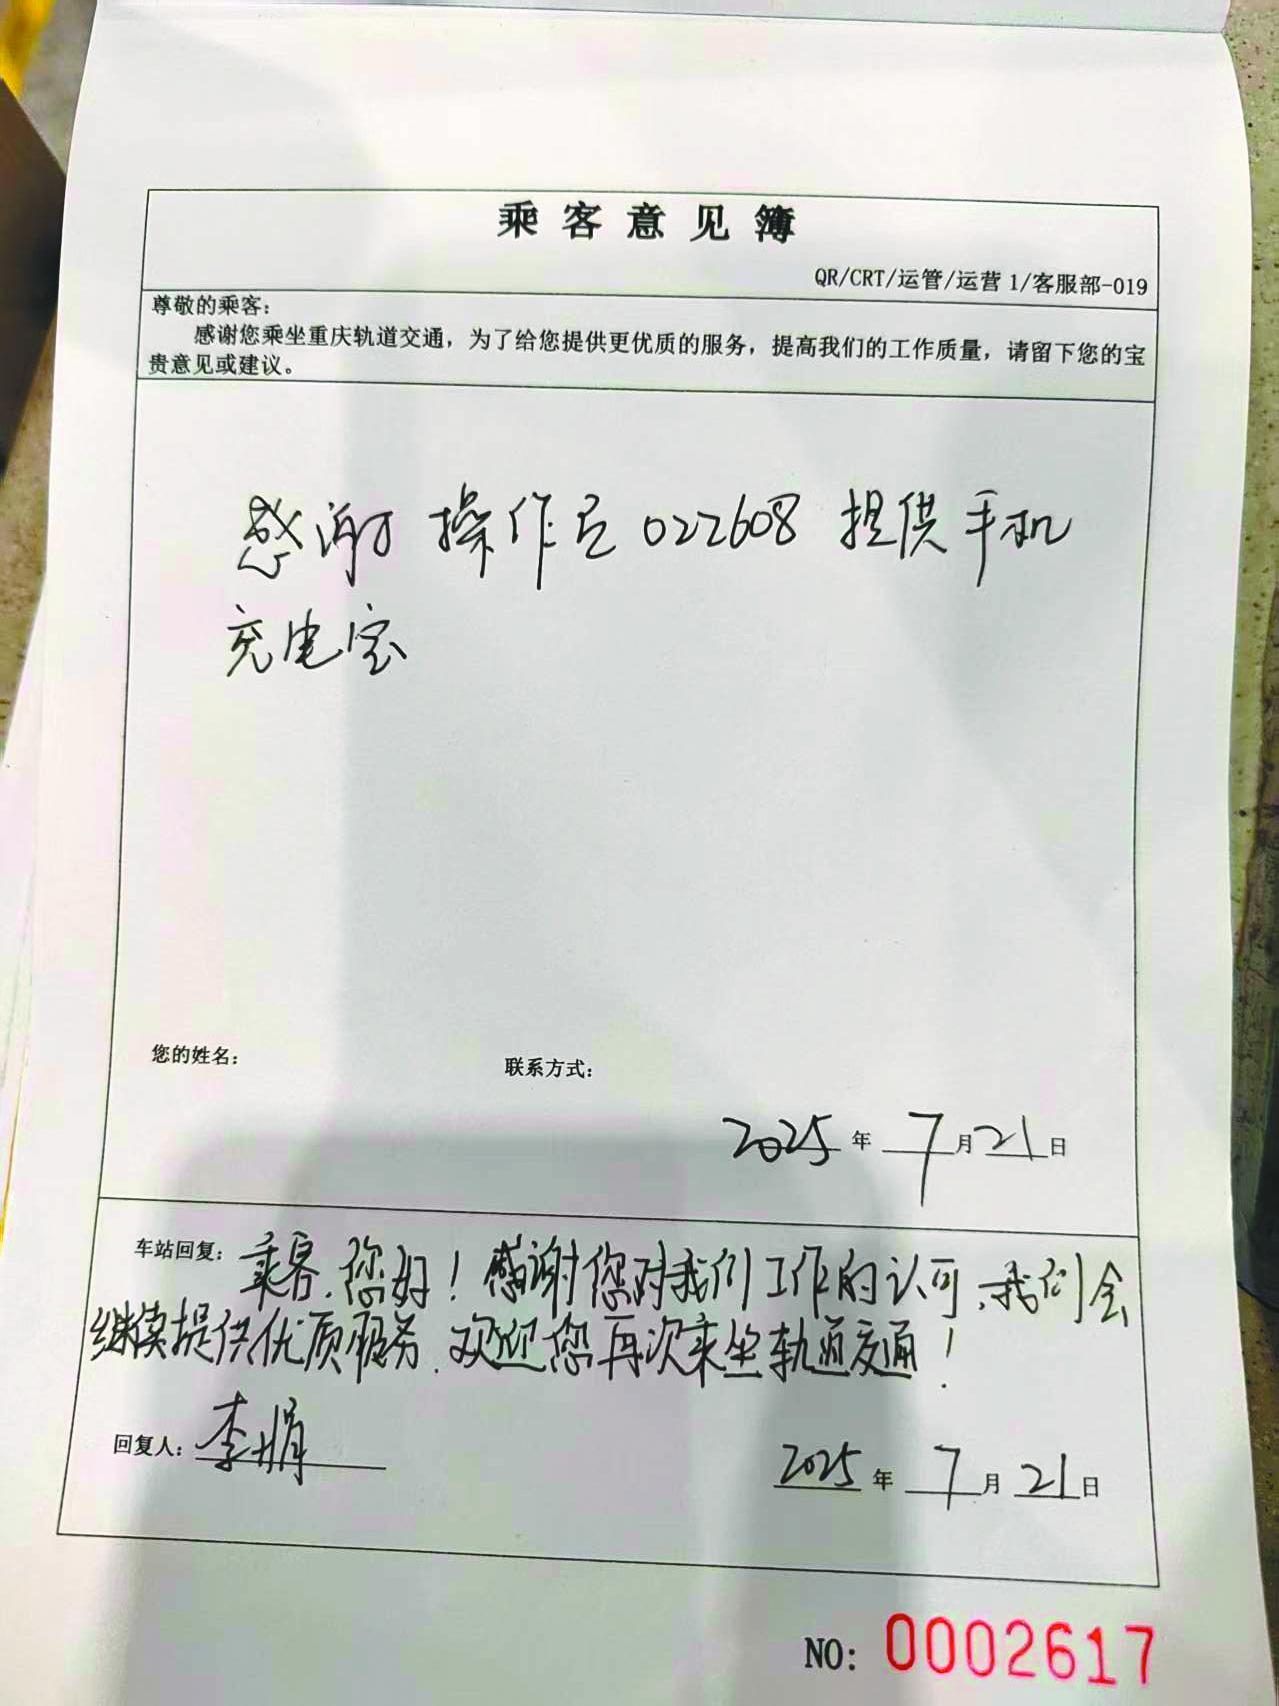 乘客意见簿
QR/CRT/运管/运营1/客服部-019
尊敬的乘客：
感谢您乘坐重庆轨道交通，为了给您提供更优质的服务，提高我们的工作质量，请留下您的宝
贵意见或建议。
感谢操作员022608提供手机
充电宝
您的姓名： 联系方式：
2025年7月21日
车站回复：乘客，您好！感谢您对我们工作的认可，我们会
继续提供优质服务，欢迎您再次乘坐轨道交通！
回复人：李娟 2025年7月21日
NO: 0002617